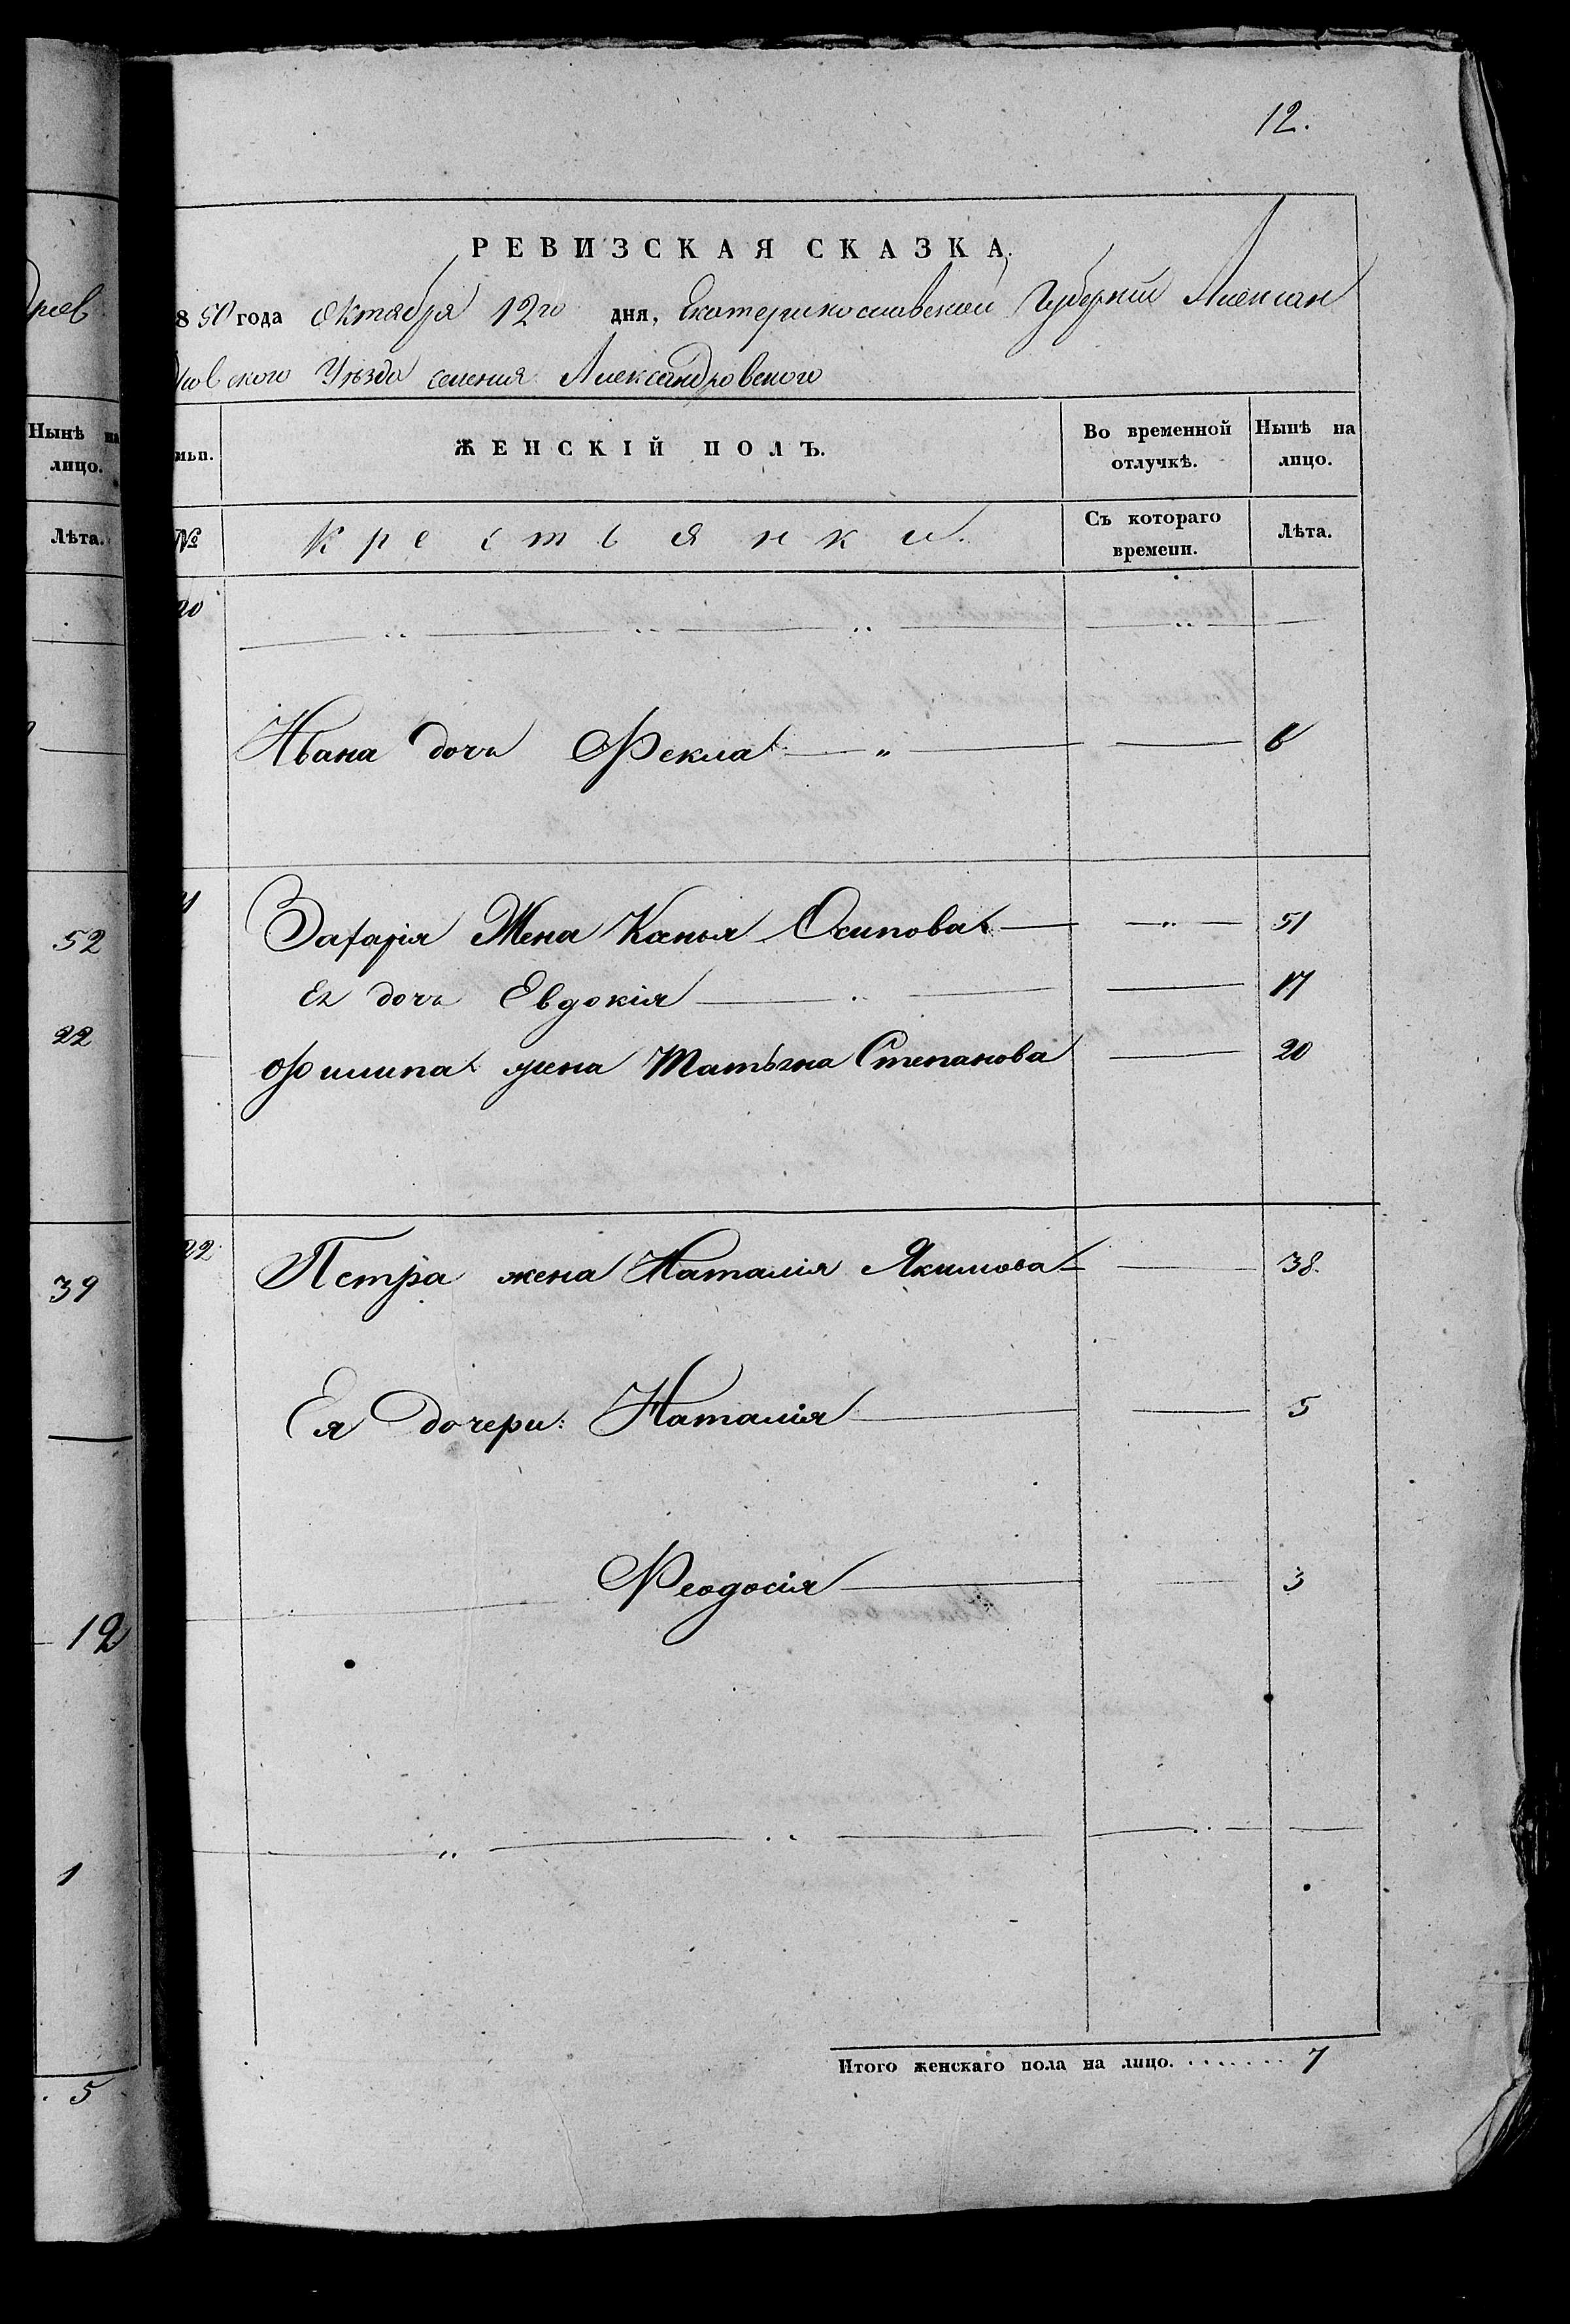 12.
РЕВИЗСКАЯ СКАЗКА
850 года Октября 12го дня, Екатеринославской Губерніи Алексан
дровского Уѣзда селения Александровского
Нынѣ на
лицо.
Лѣта.
52
22
39
12
1
5
ЖЕНСКІЙ ПОЛЪ.
Во временной
отлучкѣ.
Нынѣ на
лицо.
№
Крестьянки.
Съ котораго
времени.
Лѣта.
20
Ивана дочь Фекла — „ — 6
Захарія Жена Ксенья Осипова — 51
Ея дочь Евдокія — 17
Филипа жена Татьяна Степанова — 20
22
Петра жена Наталія Якимова — 38.
Ея дочери: Наталія — 5
Феодосія — 3
Итого женскаго пола на лицо. . . . . . . 7